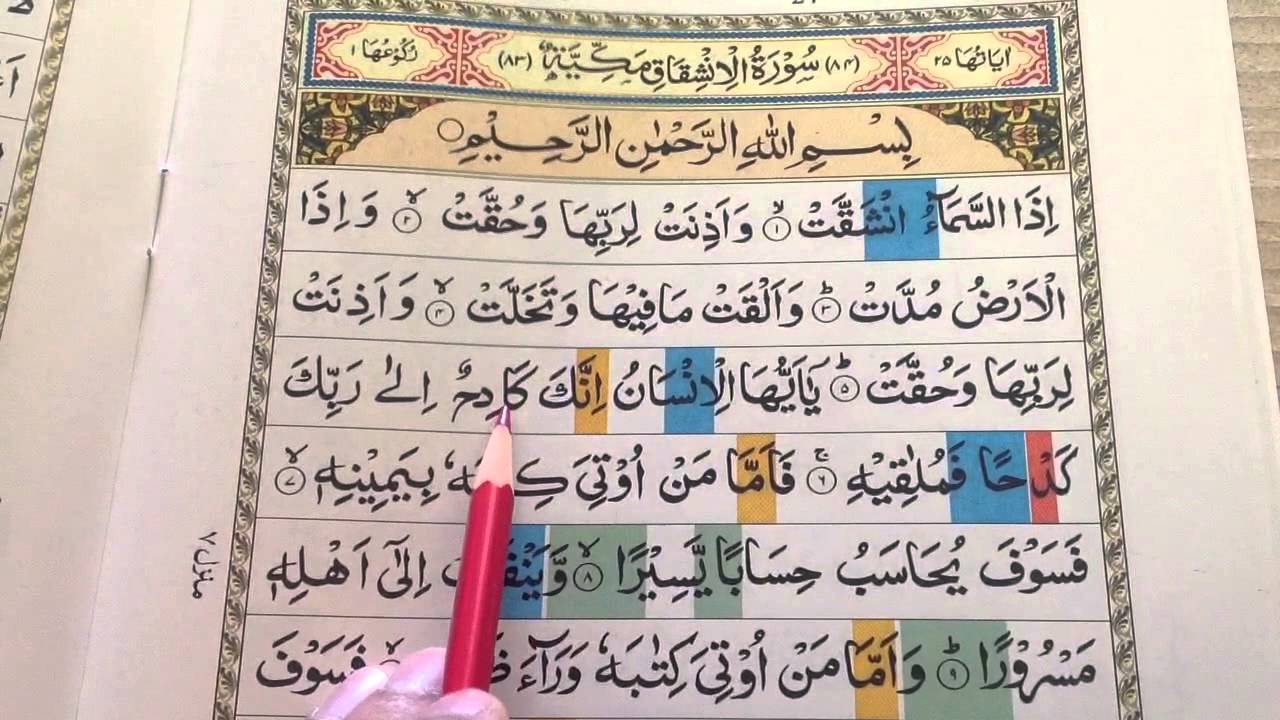 اٰيَاتُهَا ٢٥ (٨٤) سُوْرَةُ الْاِنْشِقَاقِ مَكِّيَّةٌ (٨٣) رُكُوْعُهَا ١
بِسْمِ اللّٰهِ الرَّحْمٰنِ الرَّحِيْمِ
اِذَا السَّمَآءُ انْشَقَّتْ ۙ﴿١﴾ وَاَذِنَتْ لِرَبِّهَا وَحُقَّتْ ۙ﴿٢﴾ وَ اِذَا
الْاَرْضُ مُدَّتْ ؕ﴿٣﴾ وَاَلْقَتْ مَا فِيْهَا وَتَخَلَّتْ ۙ﴿٤﴾ وَ اَذِنَتْ
لِرَبِّهَا وَحُقَّتْ ؕ﴿٥﴾ يٰۤاَيُّهَا الْاِنْسَانُ اِنَّكَ كَادِحٌ اِلٰى رَبِّكَ
كَدْحًا فَمُلٰقِيْهِ ۚ﴿٦﴾ فَاَمَّا مَنْ اُوْتِيَ بِيَمِيْنِهٖ ۙ﴿٧﴾
فَسَوْفَ يُحَاسَبُ حِسَابًا يَّسِيْرًا ۙ﴿٨﴾ اِلٰٓى اَهْلِهٖ
مَسْرُوْرًا ؕ﴿٩﴾ وَاَمَّا مَنْ اُوْتِيَ كِتٰبَهٗ وَرَآءَ فَسَوْفَ